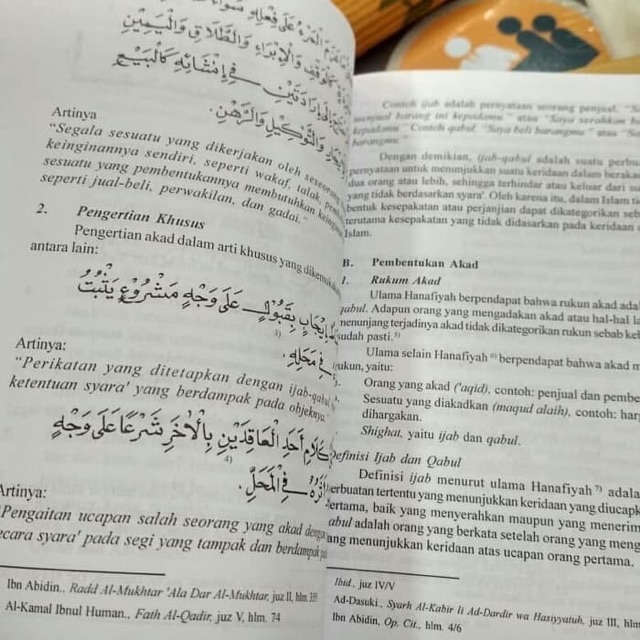 عَلَى فِعْلِهِ سَوَاءٌ
كَالْوَقْفِ وَالْاِبْرَاءِ وَالطَّلَاقِ وَالْيَمِيْنِ
اِرَادَتَيْنِ فِي اِنْشَائِهِ كَالْبَيْعِ
وَالتَّوْكِيْلِ وَالرَّهْنِ.
Artinya
“Segala sesuatu yang dikerjakan oleh
keinginannya sendiri, seperti wakaf, talak,
sesuatu yang pembentukannya membutuhkan
seperti jual-beli, perwakilan, dan gadai.”
2. Pengertian Khusus
Pengertian akad dalam arti khusus yang
antara lain:
اِيْجَابٍ بِقَبُوْلٍ عَلَى وَجْهٍ مَشْرُوْعٍ يَثْبُتُ
فِي مَحَلِّهِ.
Artinya:
“Perikatan yang ditetapkan dengan ijab-qabul
ketentuan syara' yang berdampak pada objeknya.”
كَلَامِ اَحَدِ الْعَاقِدَيْنِ بِالْاٰخَرِ شَرْعًا عَلَى وَجْهٍ
فِي الْمَحَلِّ. 4)
Artinya:
“Pengaitan ucapan salah seorang yang akad dengan
secara syara' pada segi yang tampak dan berdampak
Ibn Abidin., Radd Al-Mukhtar 'Ala Dar Al-Mukhtar, juz II, hlm.
Al-Kamal Ibnul Human., Fath Al-Qadir, juz V, hlm. 74
Contoh ijab adalah pernyataan seorang penjual,
menjual barang ini kepadamu” atau “Saya serahkan
kepadamu” Contoh qabul, “Saya beli barangmu” atau
barangmu”
Dengan demikian, ijab-qabul adalah suatu
pernyataan untuk menunjukkan suatu keridaan dalam
dua orang atau lebih, sehingga terhindar atau keluar dari
yang tidak berdasarkan syara'. Oleh karena itu, dalam Islam
bentuk kesepakatan atau perjanjian dapat dikategorikan
terutama kesepakatan yang tidak didasarkan pada keridaan
Islam.
B. Pembentukan Akad
1. Rukum Akad
Ulama Hanafiyah berpendapat bahwa rukun akad
qabul. Adapun orang yang mengadakan akad atau hal-hal
menunjang terjadinya akad tidak dikategorikan rukun sebab
sudah pasti.
Ulama selain Hanafiyah berpendapat bahwa akad
rukun, yaitu:
Orang yang akad ('aqid), contoh: penjual dan
Sesuatu yang diakadkan (maqud alaih), contoh:
dihargakan.
Shighat, yaitu ijab dan qabul.
Definisi Ijab dan Qabul
Definisi ijab menurut ulama Hanafiyah 7)
perbuatan tertentu yang menunjukkan keridaan yang
pertama, baik yang menyerahkan maupun yang
qabul adalah orang yang berkata setelah orang yang
yang menunjukkan keridaan atas ucapan orang pertama.
Ibid., juz IV/V
Ad-Dasuki., Syarh Al-Kabir li Ad-Dardir wa Hasiyyatuh, juz III,
Ibn Abidin, Op. Cit., hlm. 4/6